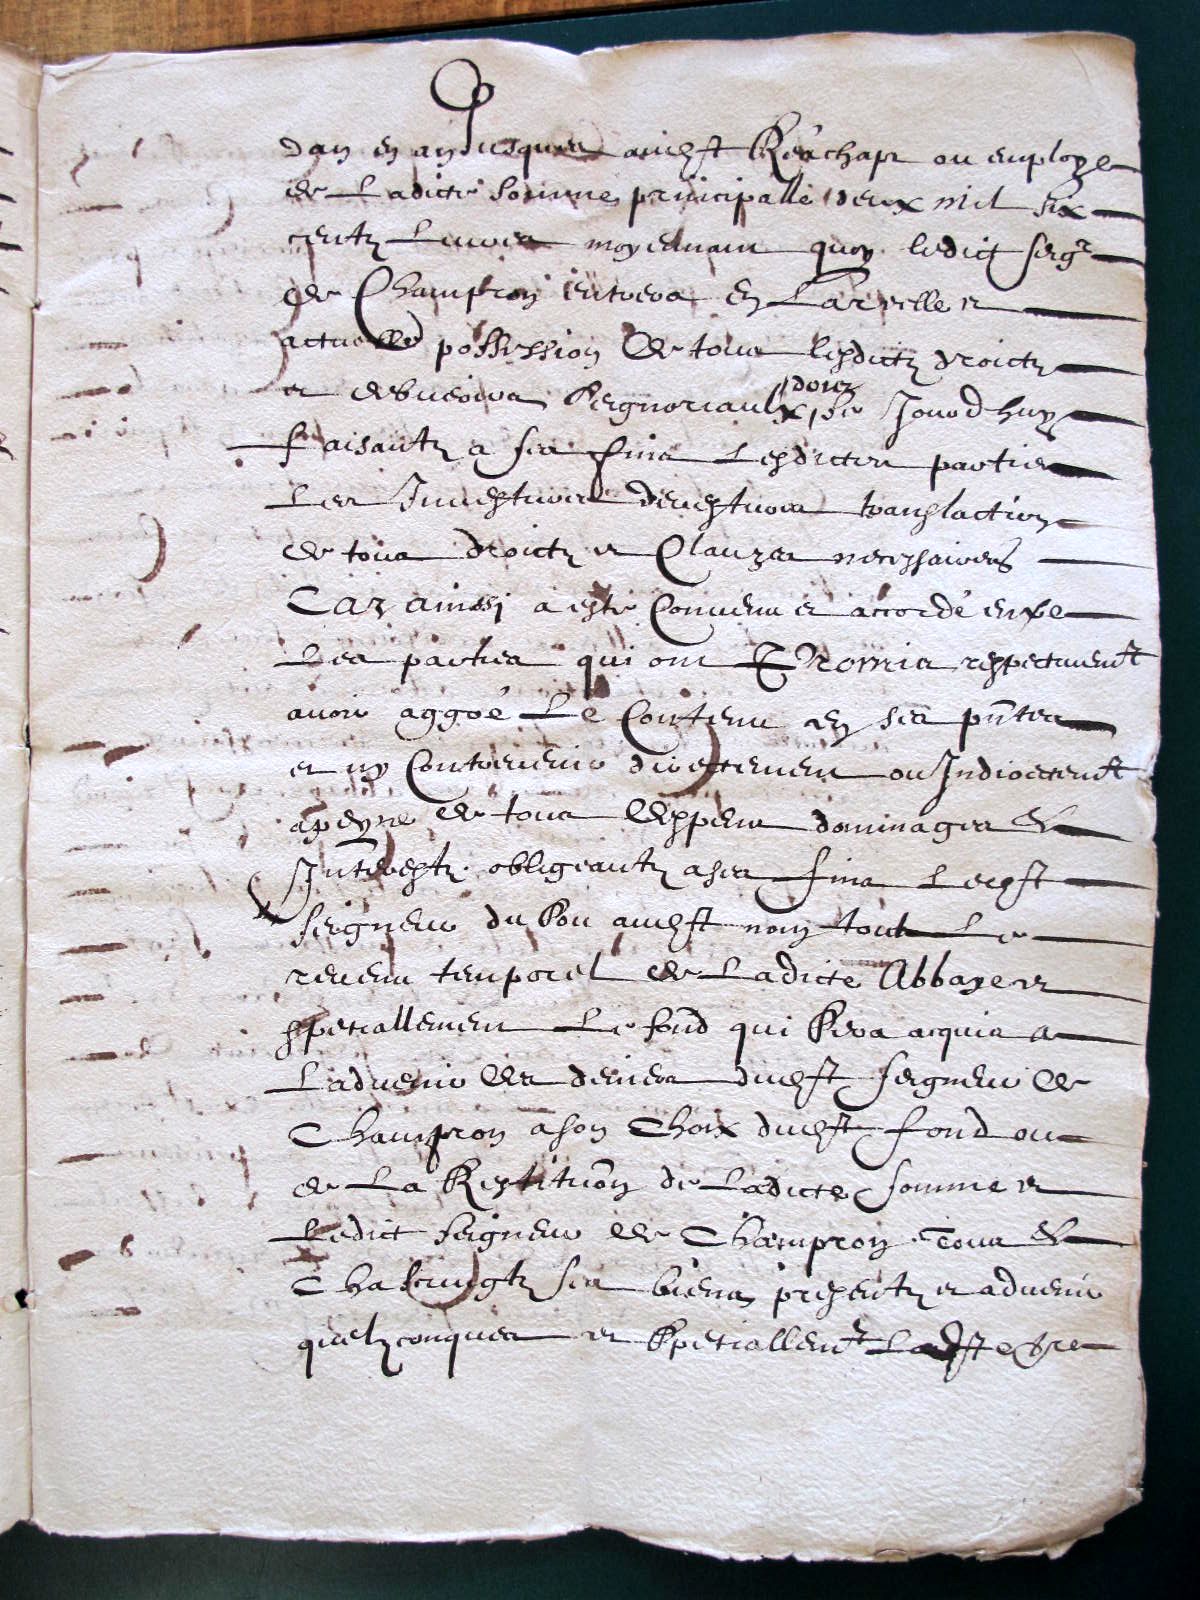 dan en an jusques aud.t Reachapt ou employe
de Ladicte somme principalle deux mil six
centz Livres moyennant quoy ledict seigr
de Champron entrera en La reelle et
actuelle possession de tous lesdictz droictz
et debvoirs seignoriaulx dores de Jourdhuy
faisantz a ses fins Lesdictes parties
Les Investures devestures translaction
de tous droictz et Clauzes necessaires
Car ainssi a esté Convenu et accordé entre
Les parties qui ont Promis respectivemt
avoir aggoé Le Contenu en ses pntes
et ny Contrevenir directement ou Indirectemt
a peyne de tous despens dommages &
Interestz obligeantz a ses fins Led.t
seigneur du audt nom tout Le
revenu temporel de Ladicte Abbaye et
spetiallement Le fond qui sera acquis a
Ladvenir des deniers dudt seigneur de
Champron a son Choix dudt fond ou
de La Restituon de Ladicte somme et
Ledict seigneur de Champron Tous &
Chascungtz ses biens presentz et advenir
quelzconques et spetiallemt Ladt tre